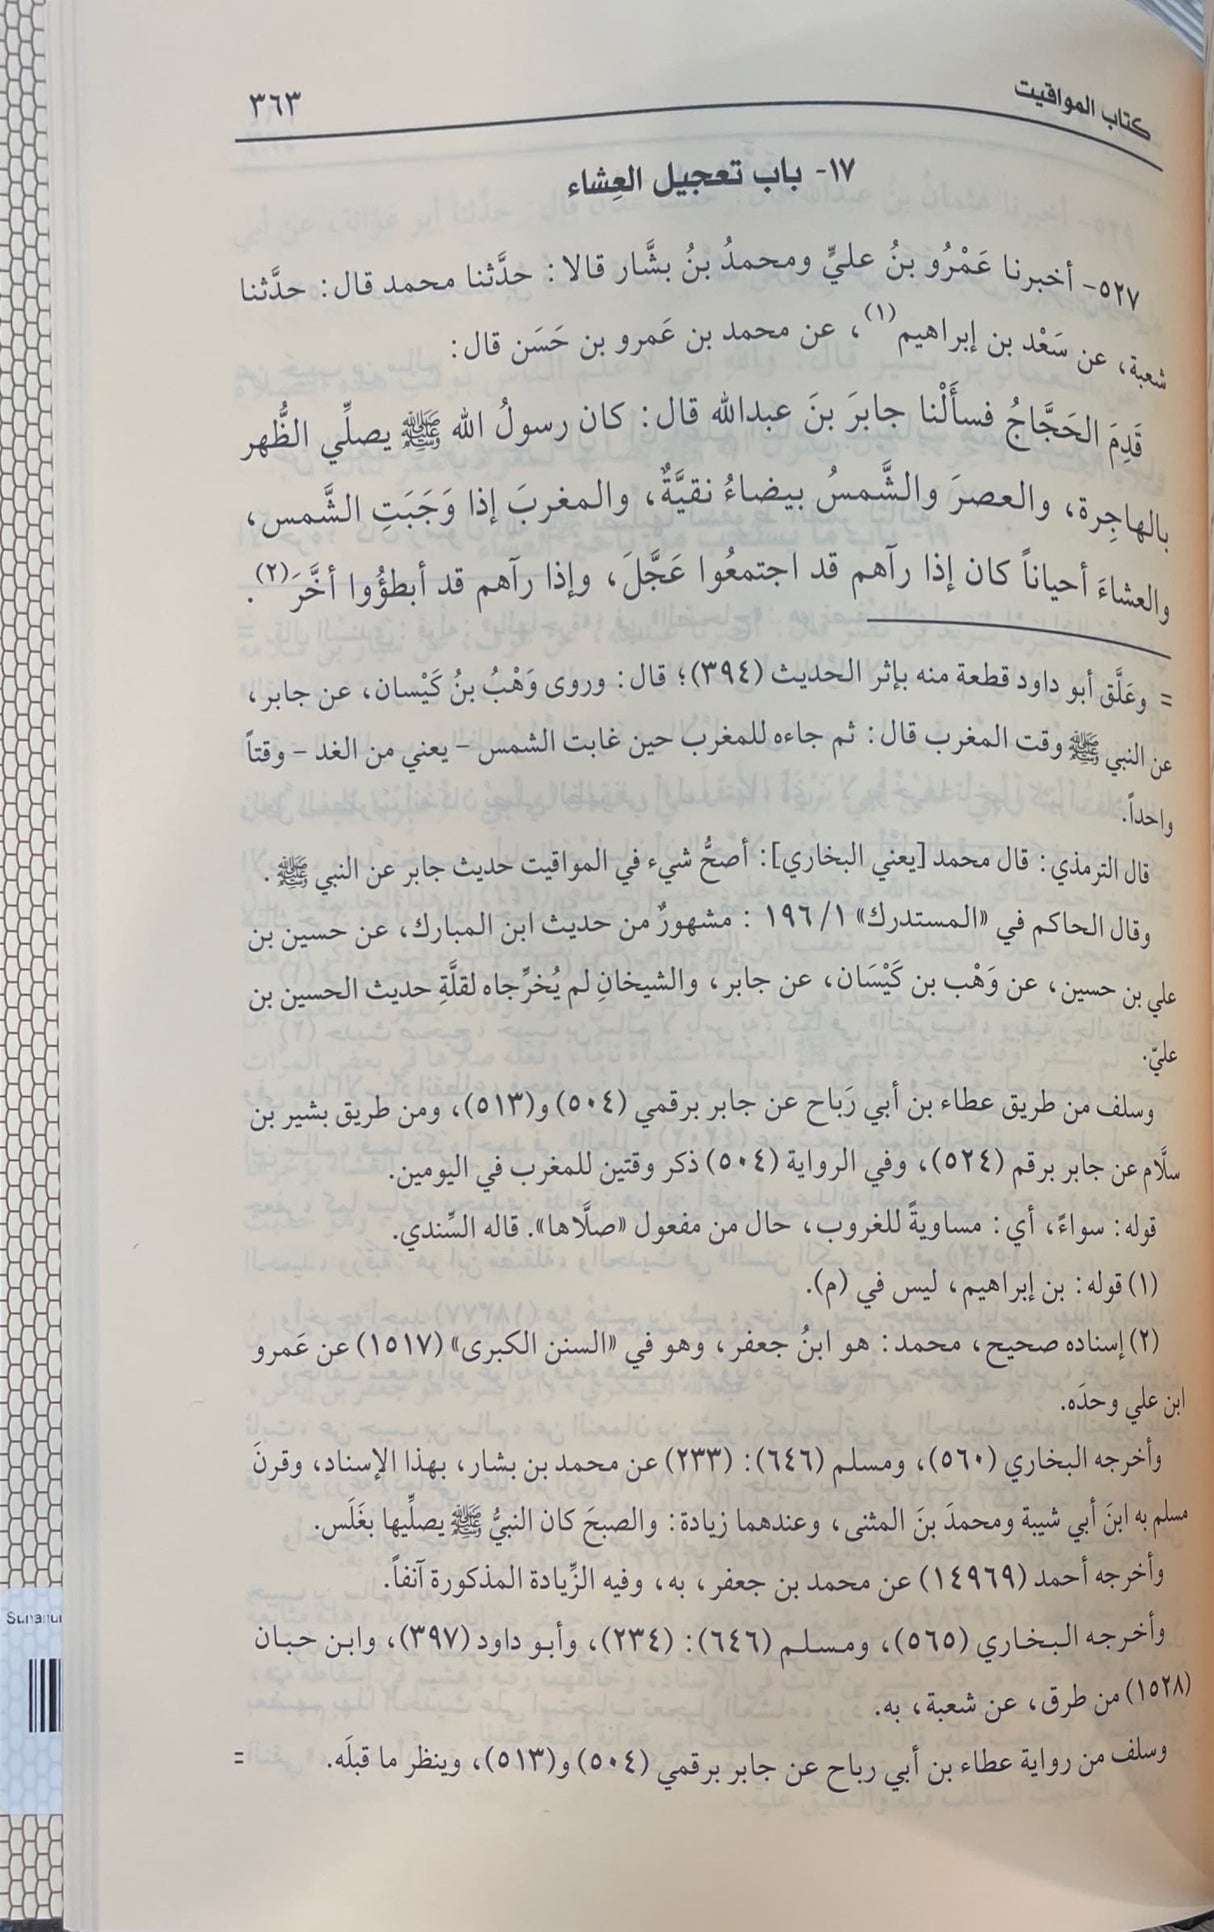 كتاب المواقيت
٣٦٣
١٧- باب تعجيل العِشاء
٥٢٧- أخبرنا عَمْرُو بنُ عليٍّ ومحمدُ بنُ بشَّار قالا: حدَّثنا محمد قال: حدَّثنا
شعبة، عن سَعْد بن إبراهيم(١)، عن محمد بن عَمرو بن حَسَن قال:
قَدِمَ الحَجَّاجُ فسأَلْنا جابرَ بنَ عبدالله قال: كان رسولُ الله ﷺ يصلِّي الظُّهر
بالهاجِرة، والعصرَ والشَّمسُ بيضاءُ نقيَّةٌ، والمغربَ إذا وَجَبَتِ الشَّمس،
والعشاءَ أحياناً كان إذا رآهم قد اجتمعُوا عَجَّلَ، وإذا رآهم قد أبطؤُوا أخَّرَ(٢).
= وعَلَّق أبو داود قطعة منه بإثر الحديث (٣٩٤)؛ قال: وروى وَهْبُ بنُ كَيْسان، عن جابر،
عن النبي ﷺ وقت المغرب قال: ثم جاءه للمغرب حين غابت الشمس - يعني من الغد - وقتاً
واحداً.
قال الترمذي: قال محمد [يعني البخاري]: أصحُّ شيء في المواقيت حديث جابر عن النبي ﷺ.
وقال الحاكم في «المستدرك» ١/ ١٩٦ : مشهورٌ من حديث ابن المبارك، عن حسين بن
علي بن حسين، عن وَهْب بن كَيْسَان، عن جابر، والشيخانِ لم يُخرِّجاه لقلَّةِ حديث الحسين بن
عليّ.
وسلف من طريق عطاء بن أبي رَباح عن جابر برقمي (٥٠٤) و(٥١٣)، ومن طريق بشير بن
سلَّام عن جابر برقم (٥٢٤)، وفي الرواية (٥٠٤) ذكر وقتين للمغرب في اليومين.
قوله: سواءً، أي: مساويةً للغروب، حال من مفعول «صلَّاها». قاله السِّندي.
(١) قوله: بن إبراهيم، ليس في (م).
(٢) إسناده صحيح، محمد: هو ابنُ جعفر، وهو في «السنن الكبرى» (١٥١٧) عن عَمرو
ابن علي وحدَه.
وأخرجه البخاري (٥٦٠)، ومسلم (٦٤٦): (٢٣٣) عن محمد بن بشار، بهذا الإسناد، وقرنَ
مسلم به ابنَ أبي شيبة ومحمدَ بنَ المثنى، وعندهما زيادة: والصبحَ كان النبيُّ ﷺ يصلِّيها بغَلَس.
وأخرجه أحمد (١٤٩٦٩) عن محمد بن جعفر، به، وفيه الزِّيادة المذكورة آنفاً.
وأخرجه البخاري (٥٦٥)، ومسلم (٦٤٦): (٢٣٤)، وأبو داود (٣٩٧)، وابن حبان
(١٥٢٨) من طرق، عن شعبة، به.
وسلف من رواية عطاء بن أبي رباح عن جابر برقمي (٥٠٤) و(٥١٣)، وينظر ما قبلَه. =